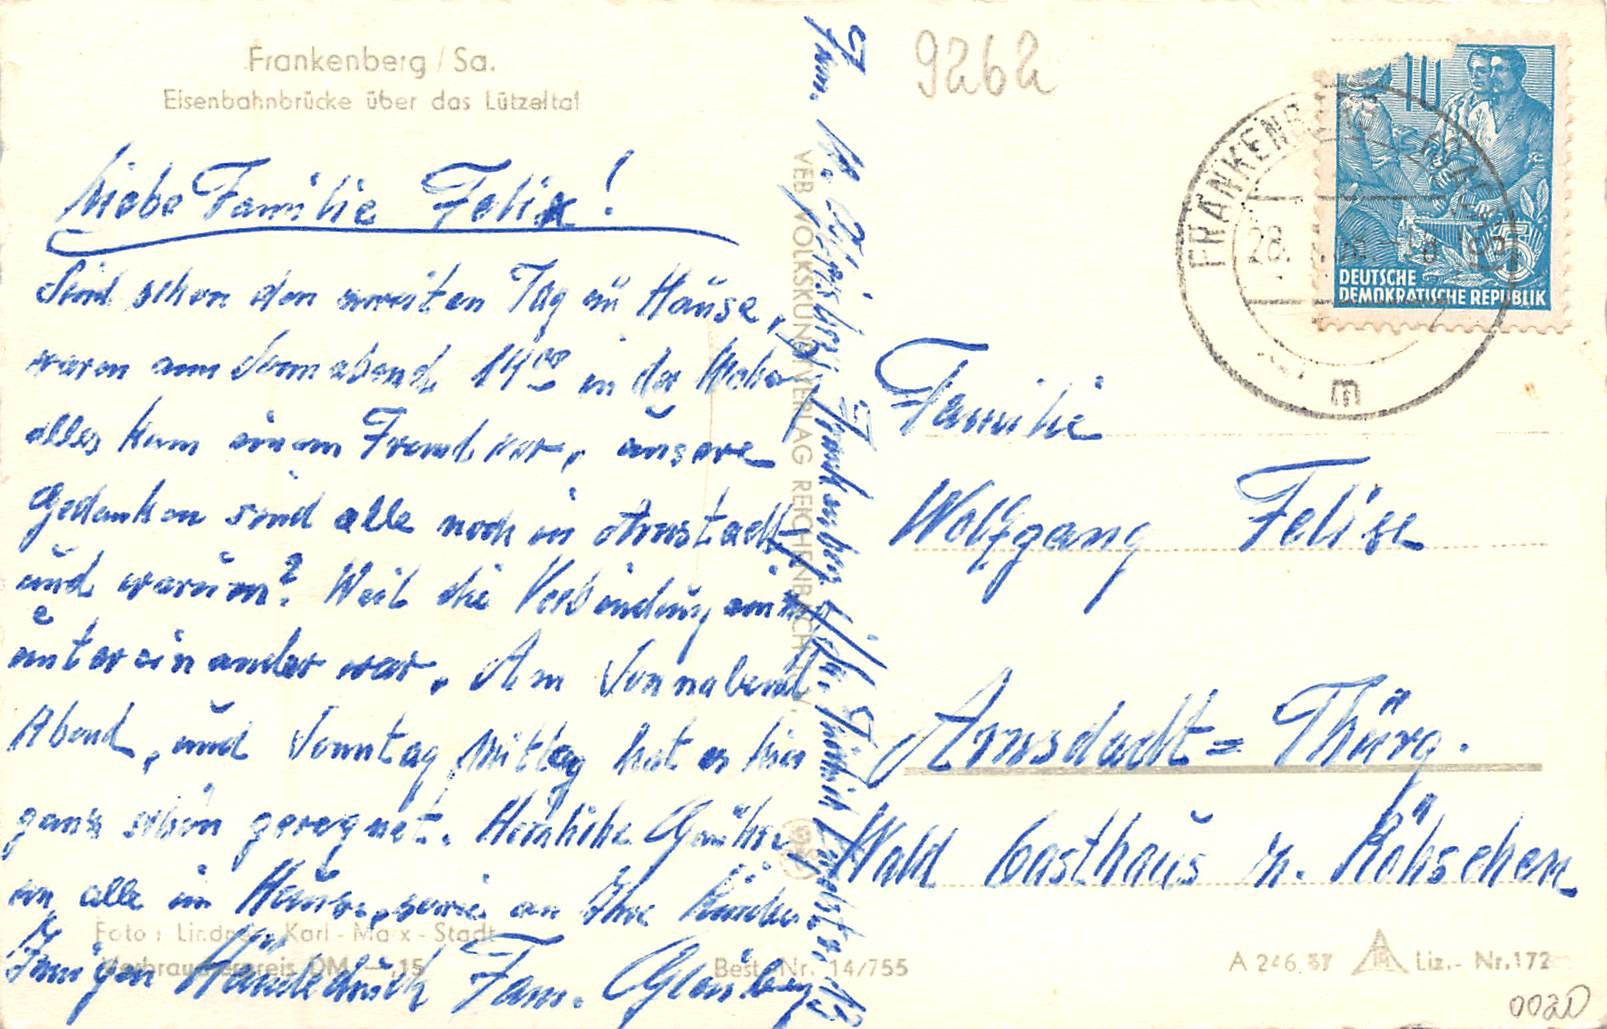 Frankenberg / Sa.
Eisenbahnbrücke über das Lützeltal
Liebe Familie Felix!
Sind schon den zweiten Tag zu Hause,
waren am Sonnabend 14⁰⁰ in der
alles kam einem Fremd vor, unsere
Gedanken sind alle noch in Arnstadt
und warum? Weil die Verbindung
untereinander war. Am Sonnabend
Abend, und Sonntag Mittag hat es hier
ganz schön geregnet. Herzliche Grüße
an alle im Hause, sowie an Ihre Kinder
Händedrück Fam.
Foto: Lindner, Karl-Marx-Stadt
Verbraucherpreis DM -,15
Best.-Nr. 14/755
VEB VOLKSKUNSTVERLAG REICHENBACH I. V.
Fam.
Frankenberg
9262
FRANKENBERG
28.
m
DEUTSCHE
DEMOKRATISCHE REPUBLIK
5
Familie
Wolfgang Felix
Arnsdadt = Thürg.
Wald Gasthaus
A 246/57
Liz.-Nr. 172